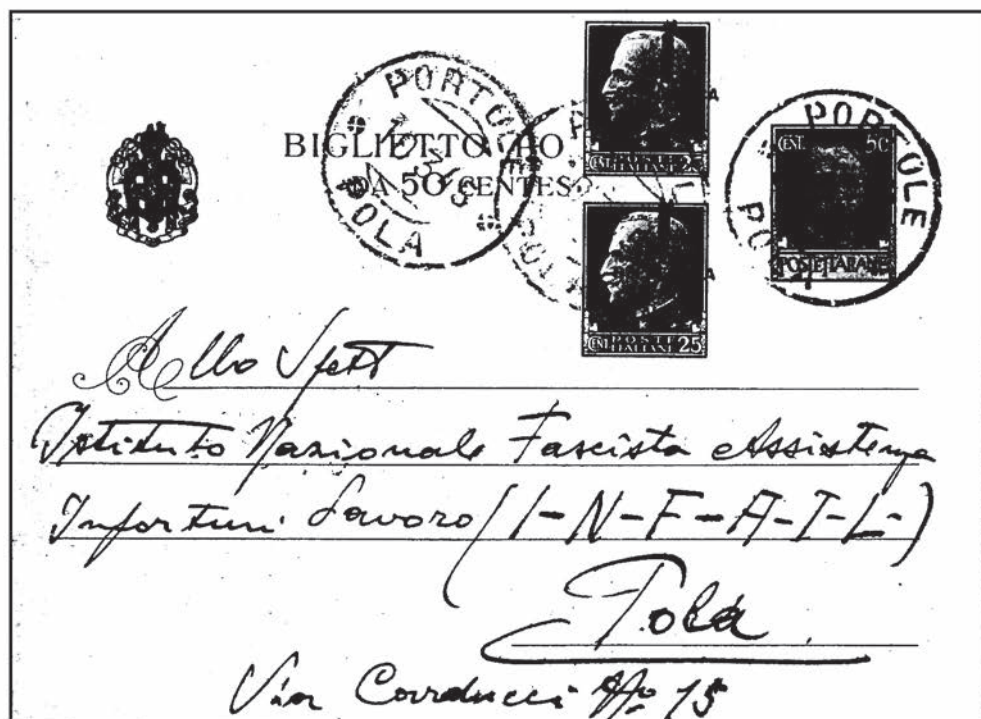 PORTOLE
POLA
BIGLIETTO PO
DA 50 CENTES
CENT. POSTE ITALIANE 25
PORTOLE
CENT. 50
POSTE ITALIANE
CENT. POSTE ITALIANE 25
Allo Spett
Istituto Nazionale Fascista Assistenza
Infortuni Lavoro (I-N-F-A-I-L-)
Pola
Via Carducci No 15